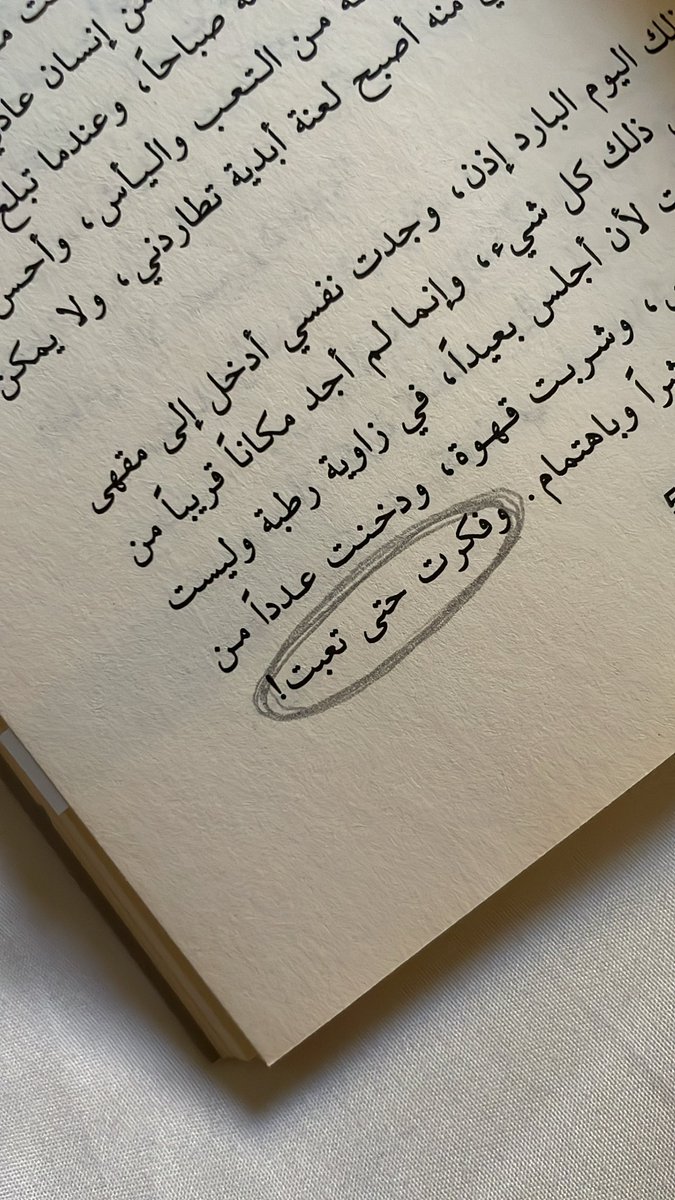 من إنسان عادي
صباحاً، وعندما تبلغ
من التعب واليأس، وأحس
منه أصبح لعنة أبدية تطاردني، ولا يمكن
اليوم البارد إذن، وجدت نفسي أدخل إلى مقهى
ذلك كل شيء، وإنما لم أجد مكاناً قريباً من
لأن أجلس بعيداً، في زاوية رطبة وليست
وشربت قهوة، ودخنت عدداً من
وباهتمام. وفكرت حتى تعبت!